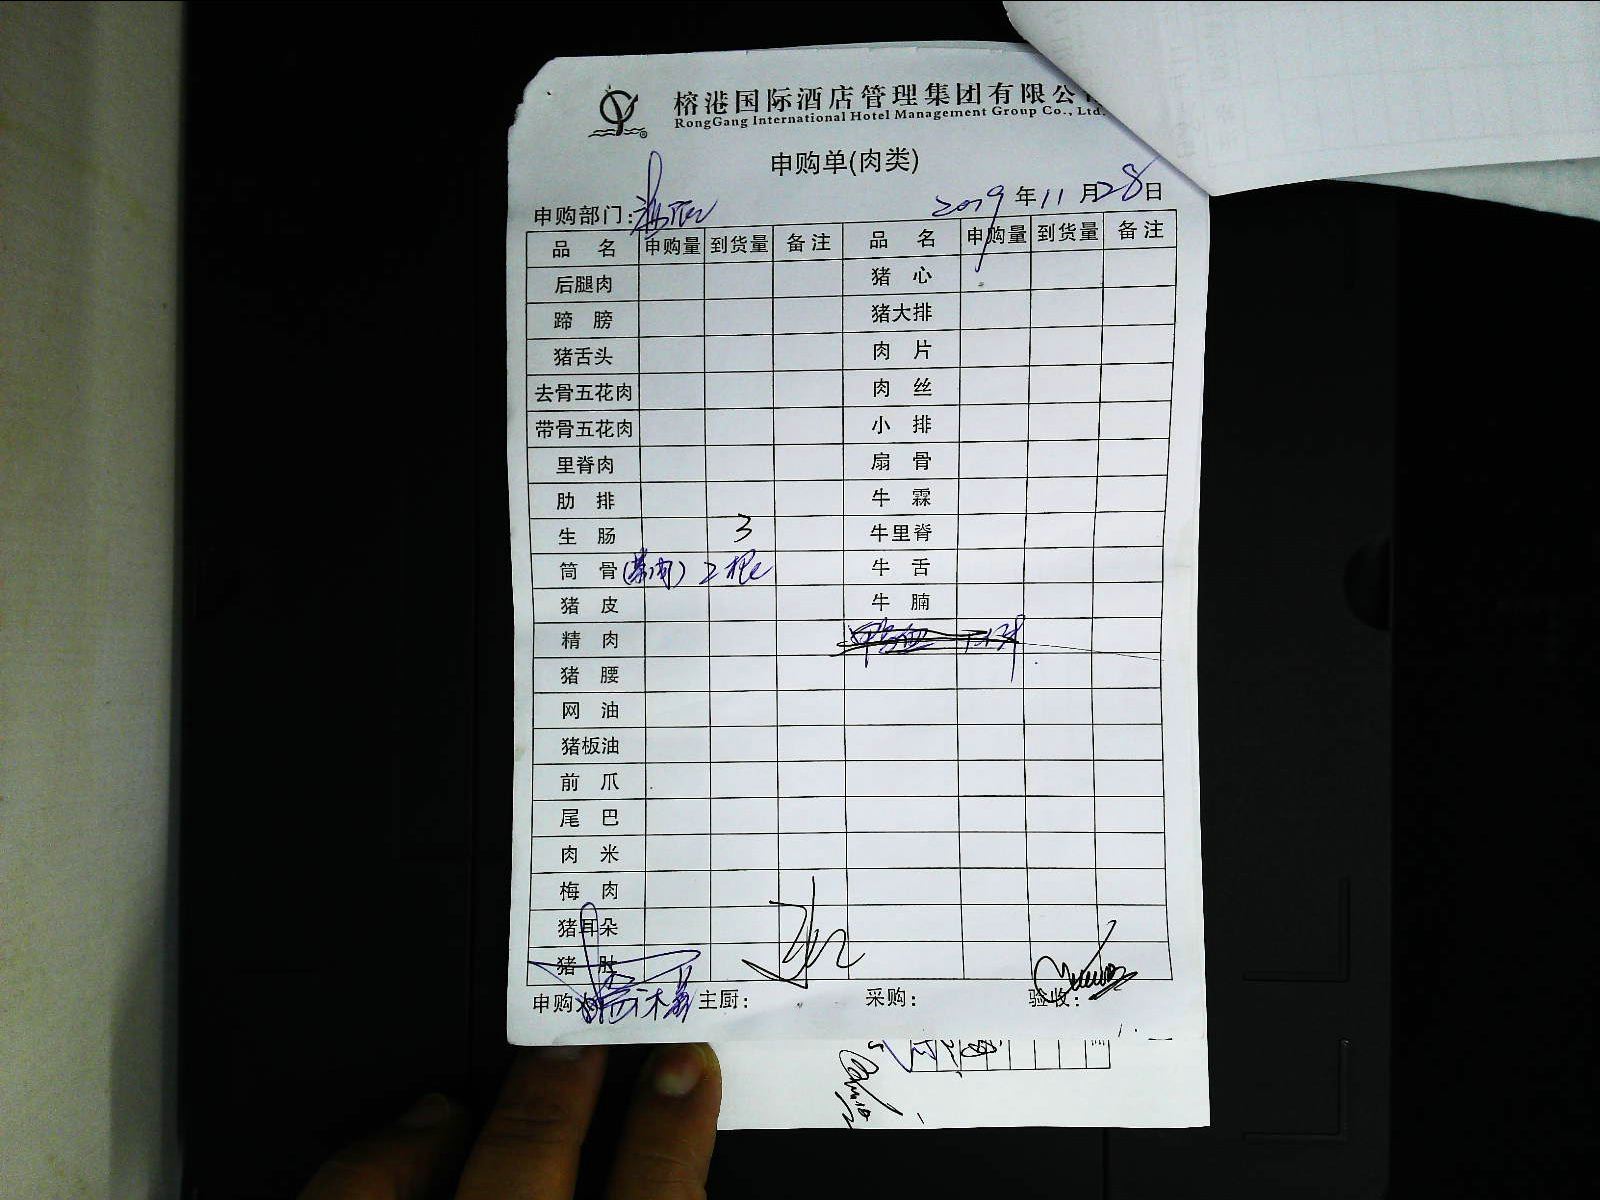 榕港国际酒店管理集团有限公
RongGang International Hotel Management Group Co., Ltd.
申购单(肉类)
申购部门: 2019 年 11 月 28 日
品 名 申购量 到货量 备注 品 名 申购量 到货量 备注
后腿肉 猪 心
蹄 膀 猪大排
猪舌头 肉 片
去骨五花肉 肉 丝
带骨五花肉 小 排
里脊肉 扇 骨
肋 排 牛 霖
生 肠 3 牛里脊
筒 骨 (带肉) 2根 牛 舌
猪 皮 牛 腩
精 肉
猪 腰
网 油
猪板油
前 爪
尾 巴
肉 米
梅 肉
猪耳朵
猪 肚
申购人 主厨: 采购: 验收: